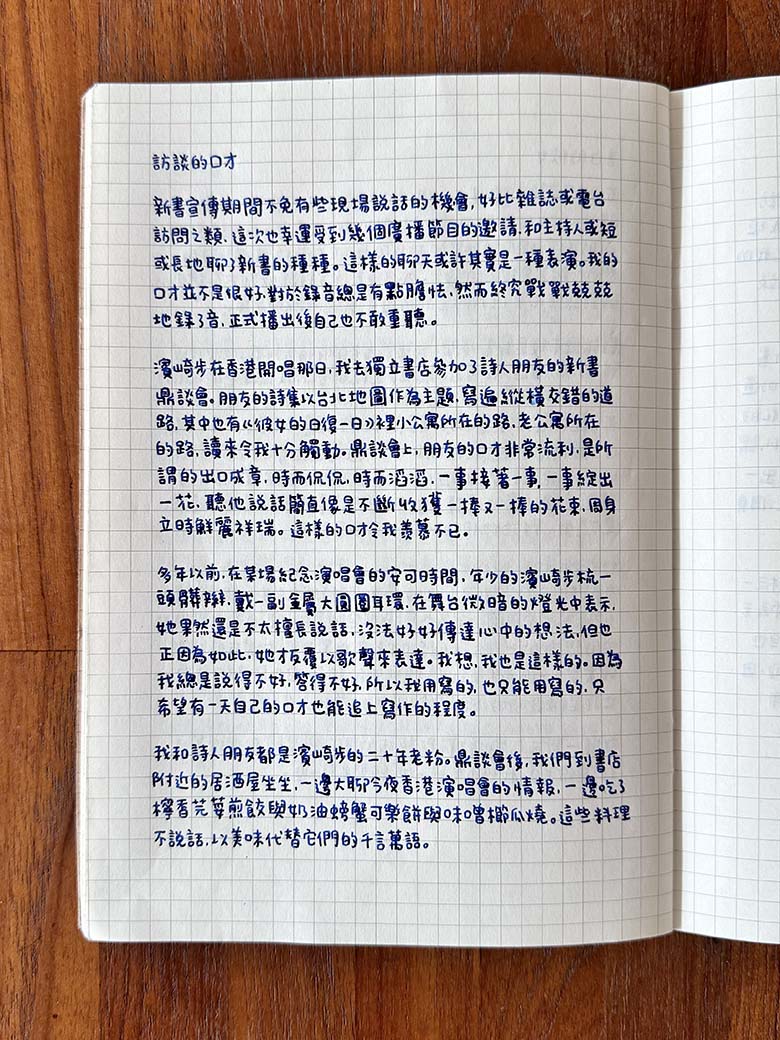 訪談的口才
新書宣傳期間不免有些現場說話的機會，好比雜誌或電台
訪問之類，這次也幸運受到幾個廣播節目的邀請，和主持人或短
或長地聊了新書的種種。這樣的聊天或許其實是一種表演。我的
口才並不是很好，對於錄音總是有點膽怯，然而終究戰戰兢兢
地錄了音，正式播出後自己也不敢重聽。
濱崎步在香港開唱那日，我去獨立書店參加了詩人朋友的新書
鼎談會。朋友的詩集以台北地圖作為主題，寫遍縱橫交錯的道
路，其中也有《彼女的日復一日》裡小公寓所在的路，老公寓所在
的路，讀來令我十分觸動。鼎談會上，朋友的口才非常流利，是所
謂的出口成章，時而侃侃，時而滔滔，一事接著一事，一事綻出
一花，聽他說話簡直像是不斷收獲一捧又一捧的花束，周身
立時鮮麗祥瑞。這樣的口才令我羨慕不已。
多年以前，在某場紀念演唱會的安可時間，年少的濱崎步梳一
頭髒辮，戴一副金屬大圓圈耳環，在舞台微暗的燈光中表示，
她果然還是不太擅長說話，沒法好好傳達心中的想法，但也
正因為如此，她才反覆以歌聲來表達。我想，我也是這樣的。因為
我總是說得不好，答得不好，所以我用寫的，也只能用寫的，只
希望有一天自己的口才也能追上寫作的程度。
我和詩人朋友都是濱崎步的二十年老粉。鼎談會後，我們到書店
附近的居酒屋坐坐，一邊大聊今夜香港演唱會的情報，一邊吃了
檸香芫荽煎餃與奶油螃蟹可樂餅與味噌櫛瓜燒。這些料理
不說話，以美味代替它們的千言萬語。